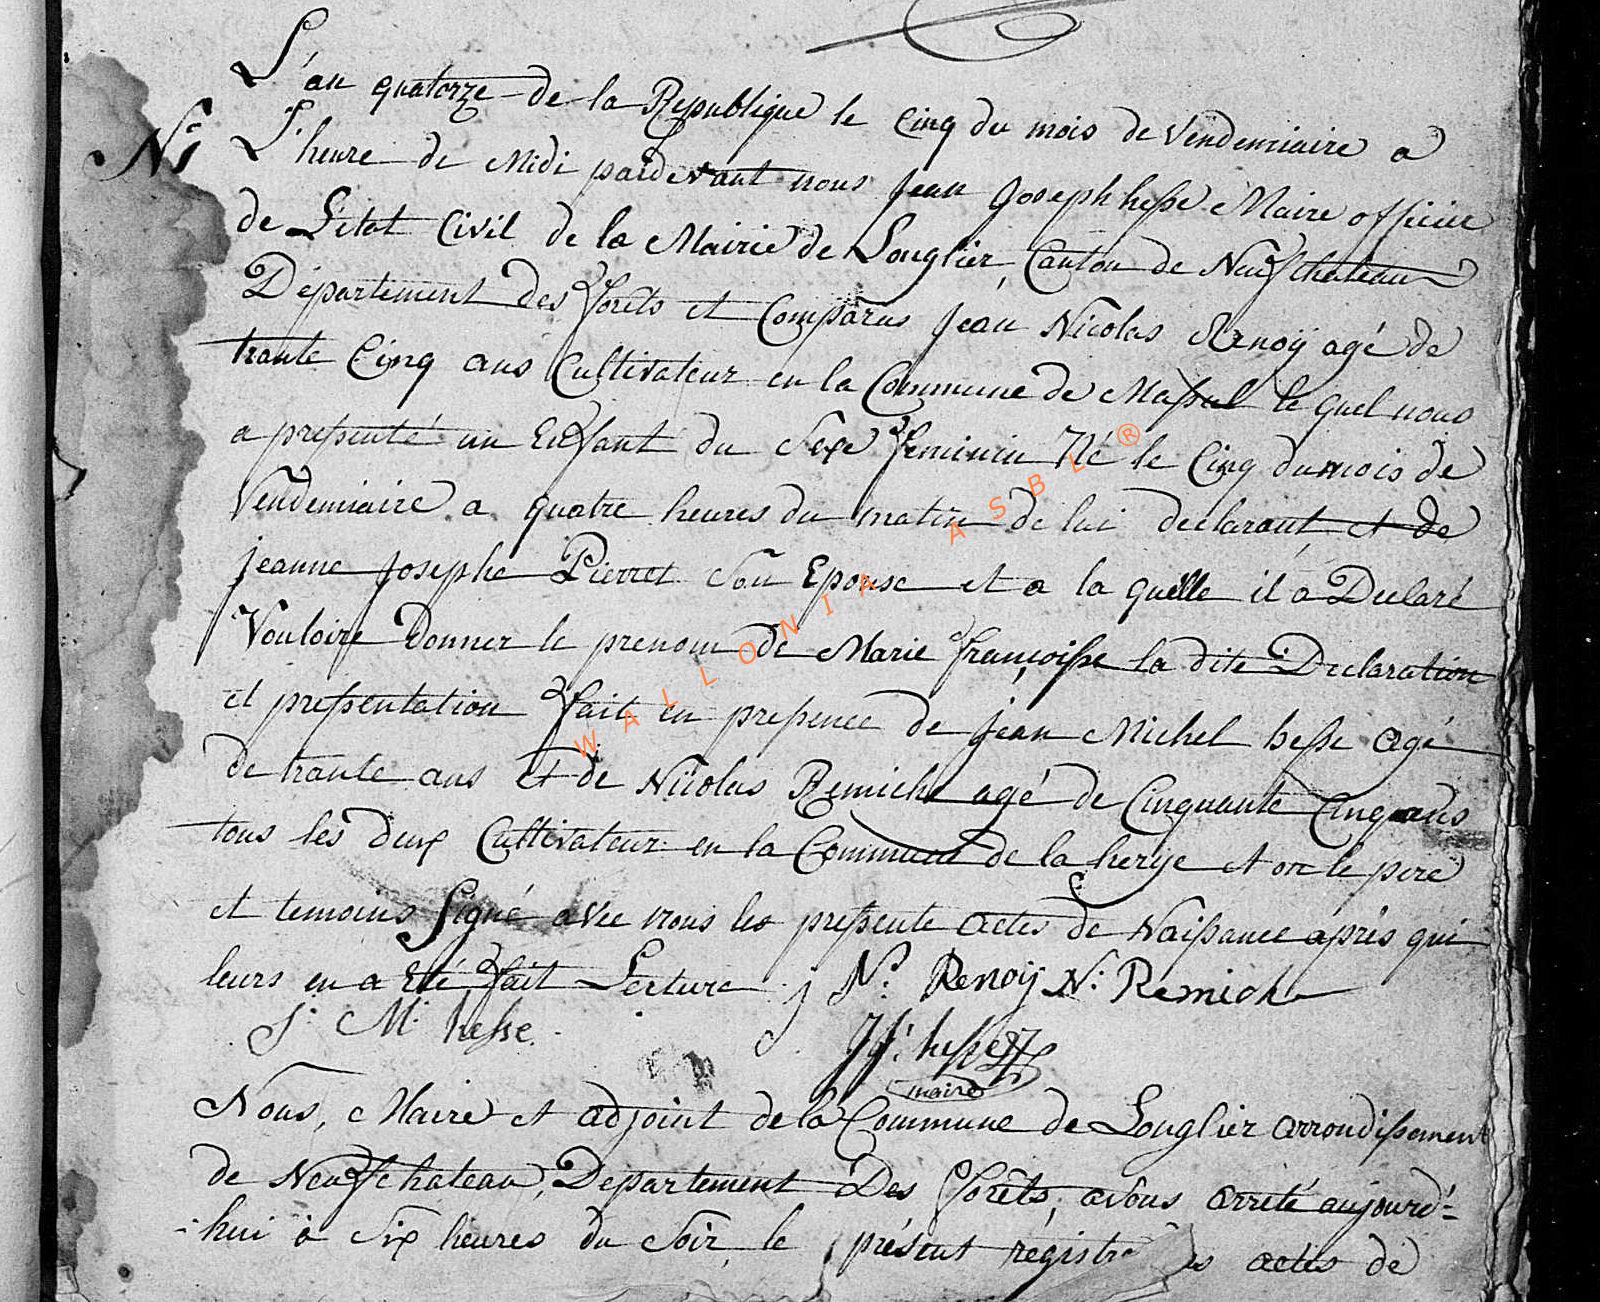 L'an quatorze de la Republique le Cinq du mois de Vendemiaire a
N.º 1 L'heure de Midi pardevant nous jean joseph hesse Maire officier
de L'etat Civil de la Mairie de Longlier, Canton de Neufchateau
Département des forêts et Comparus jean Nicolas Renoÿ agé de
trante Cinq ans Cultivateur en la Commune de Massul le quel nous
a presenté un Enfant du Sexe feminin Né le Cinq du mois de
Vendemiaire a quatre heures du matin de lui declarant et de
jeanne josephe Pierret son Epouse et a la quelle il a Declaré
Vouloire donner le prenom de Marie françoisse la dite Declaration
et pressentation fait en pressence de jean Michel hesse agé
de trante ans et de Nicolas Remich agé de Cinquante Cinq ans
tous les deux Cultivateur en la Commune de la herje et on le pere
et temoins Signé avec nous les pressente actes de Naissance après qui
leurs en a eté fait Lecture j N.s Renoÿ N. Remich
J. M. hesse. J J. hesse
maire
Nous, Maire et adjoint de la Commune de Longlier arrondissement
de Neufchateau, Departement Des forêts, avons arreté aujourd'=
hui à Six heures du Soir, le présent régistre actes de
WALLONIA ASBL ®